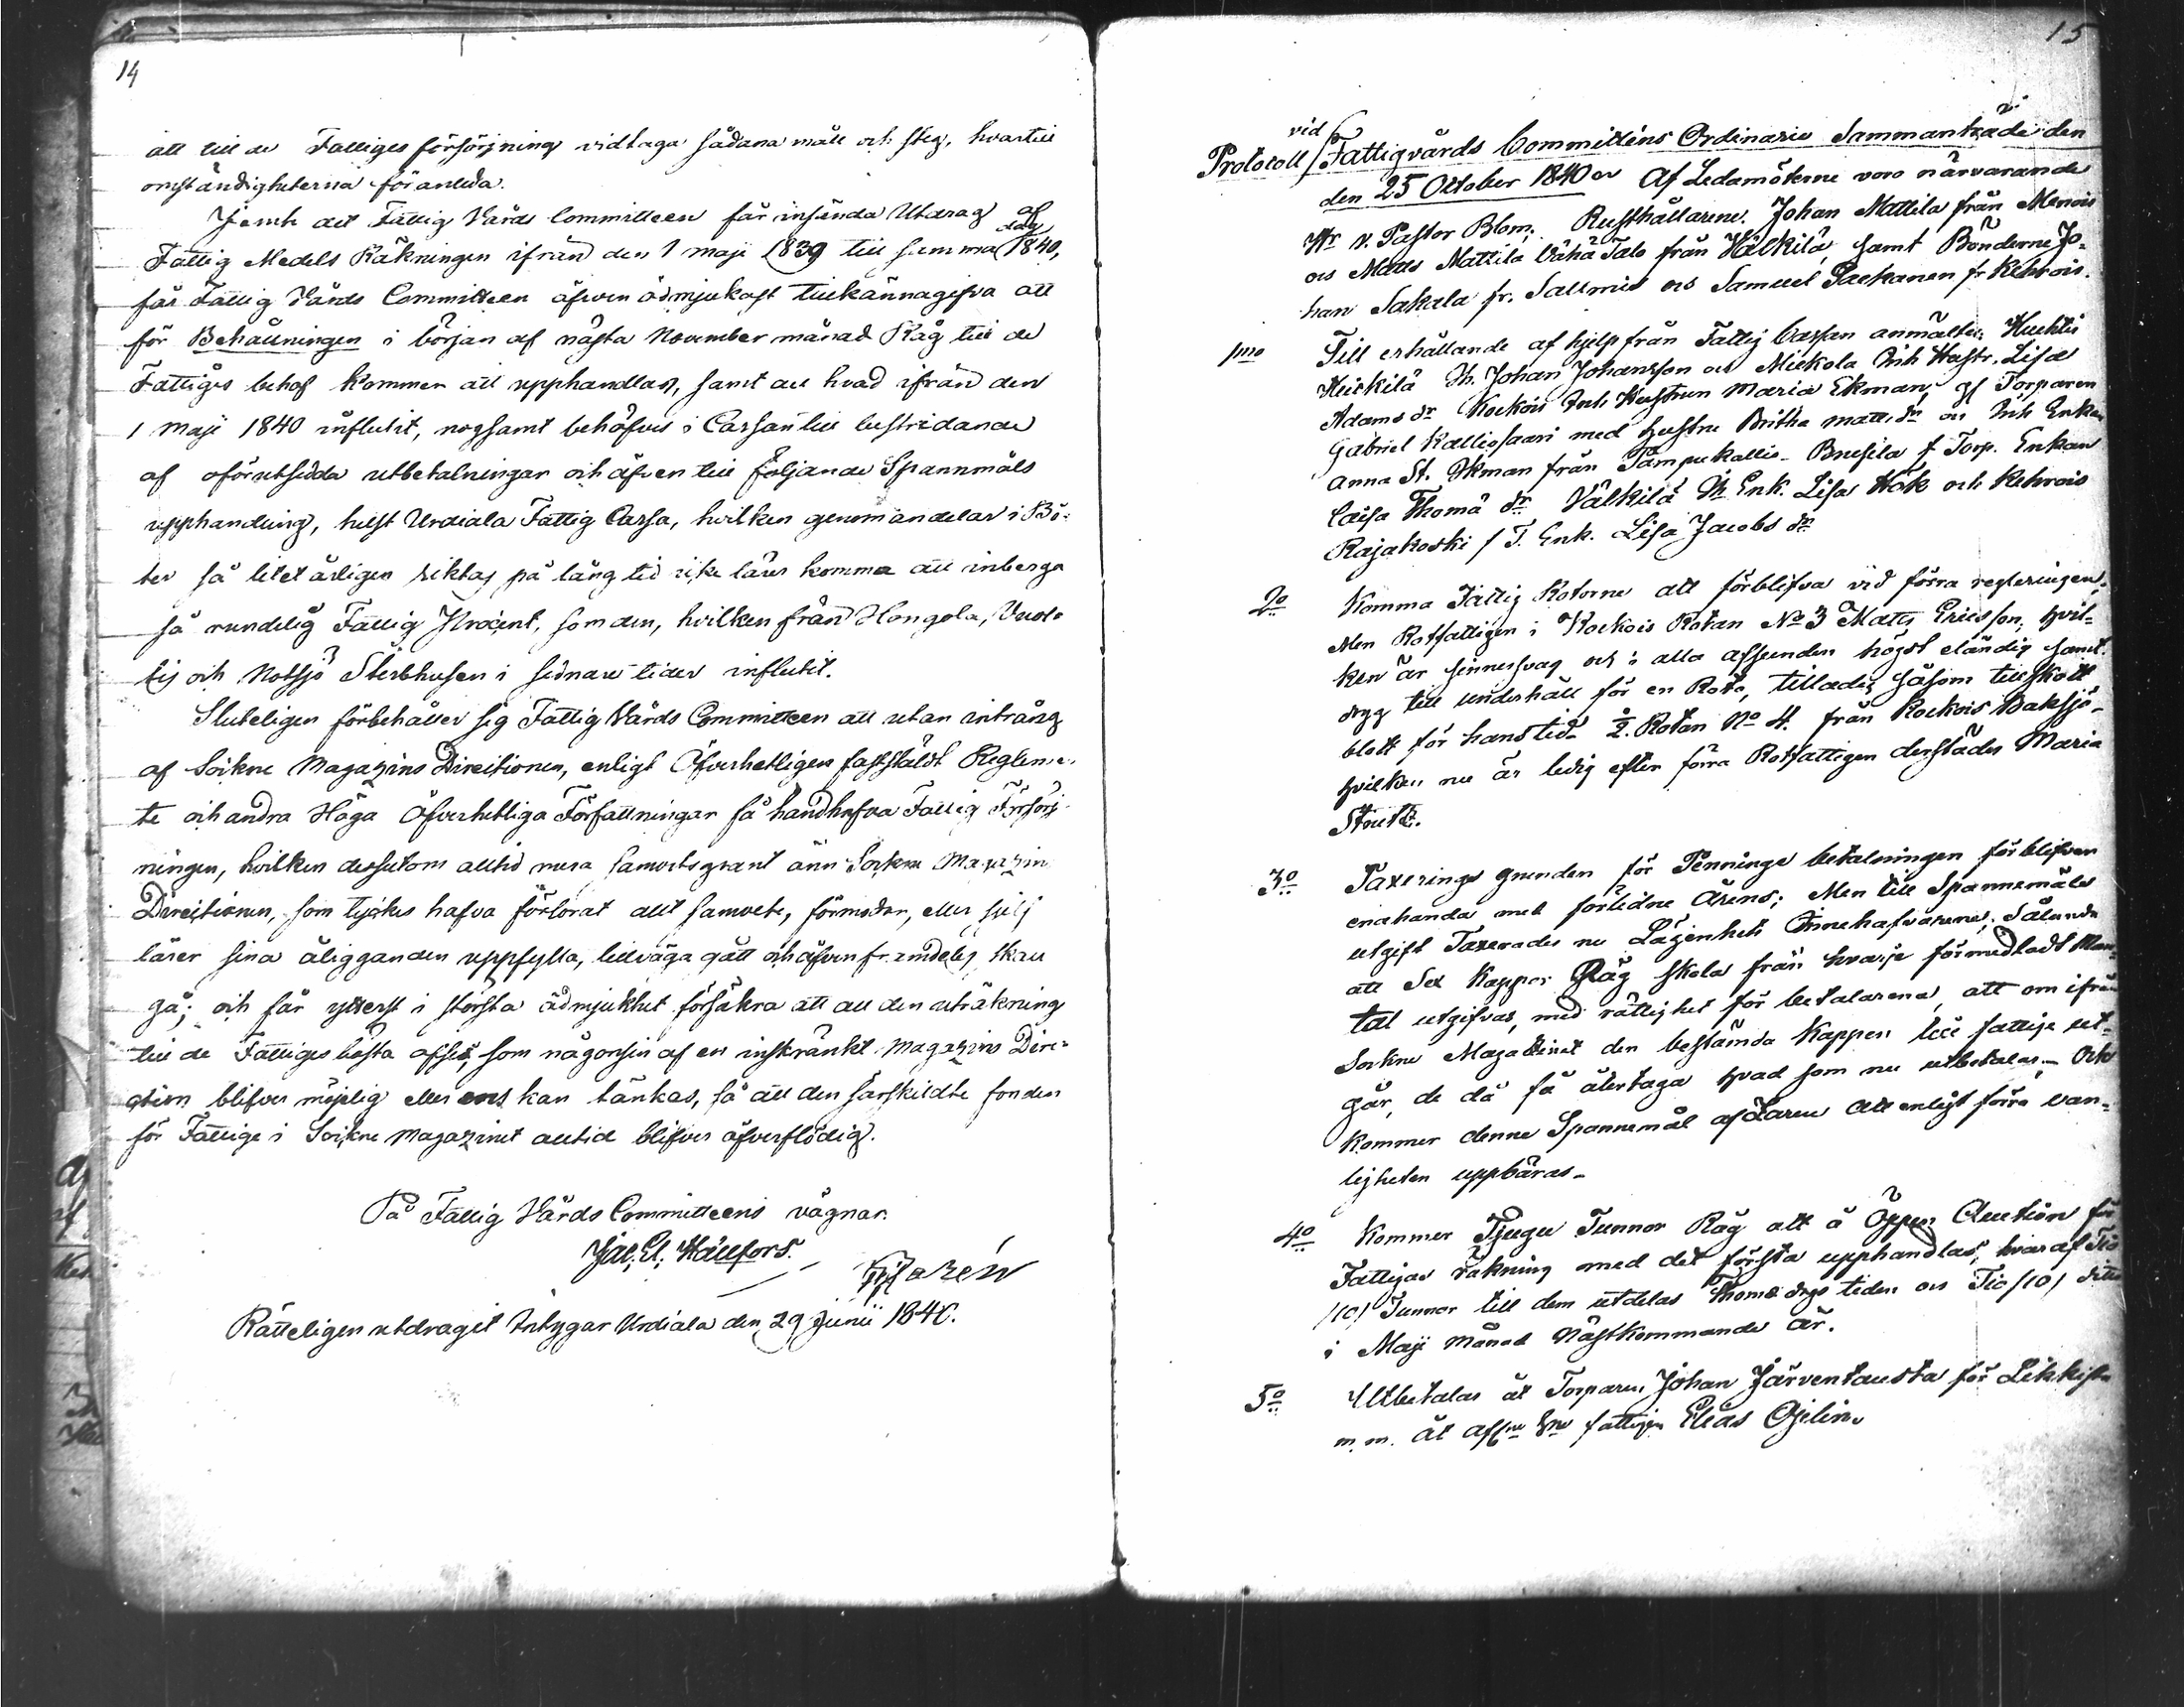 14
att till de Fattiges försörjning vidtaga sådana mått och steg, hvartill
omständigheterna föranleda.
Jemte det Fattig Vårds Committeen får insända Utdrag af
Fattig Medels Räkningen ifrån den 1 Maji 1839 till samma dag 1840,
får Fattig Vårds Committeen äfwen ödmjukast tillkännagifva att
för Behållningen i början af nästa November månad Råg till de
Fattiges behof kommer att upphandlas, samt att hvad ifrån den
1 Maji 1840 influtit, nogsamt behöfves i Cassan till bestridande
af oförutsedda utbetalningar och äfven till följande Spannmåls
upphandling, helst Urdiala Fattig Cassa, hvilken genom andelar i Bö-
ter så litet årligen riktas på lång tid icke lärer komma att inberga
så rundelig Fattig Procent, som den, hvilken från Hongola, Vuol-
tis och Notsjö Sterbhusen i sednare tider influtit.
Sluteligen förbehåller sig Fattig Vårds Committeen att utan intrång
af Sockne Magazins Directionen, enligt Öfverhetligen fastställdt Reglemen-
te och andra Höga Öfverhetliga Författningar få handhafva Fattig Försörj-
ningen, hvilken dessutom alltid mera samvetsgrant änn Sockne Magazins
Directionen, som tyckes hafva förlorat allt samvete, förmodar, eller sjelf
lärer sina åligganden uppfylla, tillväga gått och äfven framdeles skall
gå; och får ytterst i största ödmjukhet försäkra att all den uträkning
till de Fattiges bästa afses, som någonsin af en inskränkt Magazins Dire-
ction blifver möjelig eller ens kan tänkas, så att den särskildte fonden
för Fattige i Sockne Magazinet alltid blifver öfverflödig.
På Fattig Vårds Committeens vägnar.
Jac. El. Hällfors.
Rätteligen utdragit Intygar Urdiala den 29 Junii 1840.
15
Protocoll vid Fattigvårds Committéns Ordinarie Sammanträde den
den 25 October 1840 Af Ledamöterne voro närvarande
Hr v. Pastor Blom, Rusthållarene Johan Mattila från Menois
och Matts Mattila Vähä Talo från Välkilä, samt Bönderne Jo-
han Sakala fr. Salmis och Samuel Packanen fr Kehrois.
1mo Till erhållande af hjelp från Fattig Cassan anmältes: Huchtis
Heickilä Ih. Johan Johansson och Mickola Inh Hustr. Lisa
Adams dr Kockois Inh Hustrun Maria Ekman, af Torparen
Gabriel Kalliosaari med hustru Britha Matts dr och Inh Enkan
Anna St. Ekman från Tampukallis Brusila f Torp. Enkan
Caisa Thomæ dr Välkilä Ih Enk. Lisa Hök och Kehrois
Rajakoski f T. Enk. Lisa Jacobs dr
2o Komma Fattig Rotorne att förblifva vid förra regleringen;
Men Rotfattigen i Kockois Rotan No 3 Matts Ericsson, hvil-
ken är sinnessvag och i alla afseenden högst eländig samt
dryg till underhåll för en Rota, tillades såsom tillskott
blott för hans tid ½ Rotan No 4. från Kockois Baksjö
hvilken nu är ledig efter förra Rotfattigen derstädes Maria
Stoult.
3o Taxerings grunden för Penninge betalningen förblifver
enahanda med förledne Årens; Men till Spannemåls
utgift Taxerades nu Lägenhets Innehafvarene; Sålunda
att Sex Kappor Råg skola från hvarje förmedladt Man-
tal utgifvas, med rättighet för betalarena, att om ifrån
Sockne Magazinet den bestämda Kappen till fattige ut-
går, de då få återtaga hvad som nu utbetalas. Och
kommer denne Spannemål af Laren att enligt förra van-
ligheten uppbäras.
4o Kommer Tjugu Tunnor Råg att å Öppen Auction för
Fattigas räkning med det första upphandlas, hvaraf Tio
/10/ Tunnor till dem utdelas Thomædags tiden och Tio /10/ ditto
i Maji Månad Nästkommande år.
5o Utbetalas åt Torparen Johan Järventausta för Likkista
m. m. åt fattigen Elias Öjelin